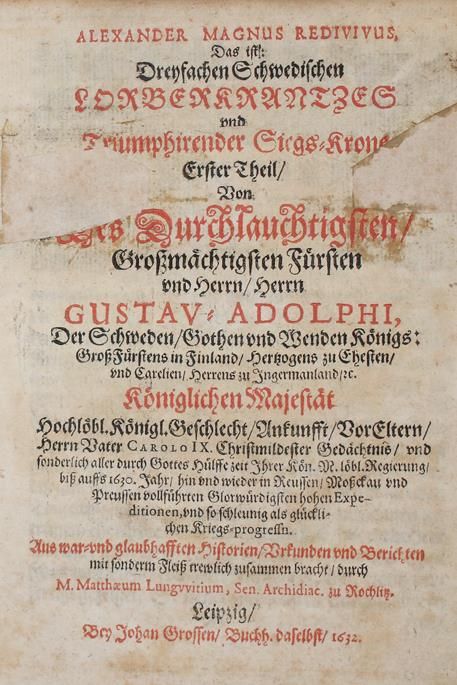 ALEXANDER MAGNUS REDIVIVUS,
Das ist:
Dreyfachen Schwedischen
LORBERKRANTZES
vnd
Triumphirender Siegs-Krone
Erster Theil/
Von
Des Durchlauchtigsten/
Großmächtigsten Fürsten
vnd Herrn/ Herrn
GUSTAV-ADOLPHI,
Der Schweden/Gothen vnd Wenden Königs:
GroßFürstens in Finland/ Hertzogens zu Ehesten/
vnd Carelien/ Herrens zu Ingermanland/ꝛc.
Königlichen Majestät
Hochlöbl. Königl. Geschlecht/Ankunfft/VorEltern/
Herrn Vater CAROLO IX. Christmildester Gedächtnis/ vnd
sonderlich aller durch Gottes Hülffe zeit Ihrer Kön. M. löbl. Regierung/
biß auffs 1630. Jahr/ hin vnd wieder in Reussen/ Moßckau vnd
Preussen vollführten Glorwürdigsten hohen Expe-
ditionen, vnd so schleunig als glückli-
chen Kriegs-progressn.
Aus war-vnd glaubhafften Historien/Vrkunden vnd Berichten
mit sonderm Fleiß trewlich zusammen bracht/ durch
M. Matthæum Lungvvitium, Sen. Archidiac. zu Rochlitz.
Leipzig/
Bey Johan Grossen/ Buchh. daselbst/ 1632.